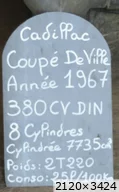 Cadillac
Coupé DeVille
Année 1967
380CV DIN
8 Cylindres
Cylindrée 7735cm³
Poids: 2T220
Conso: 25l/100km